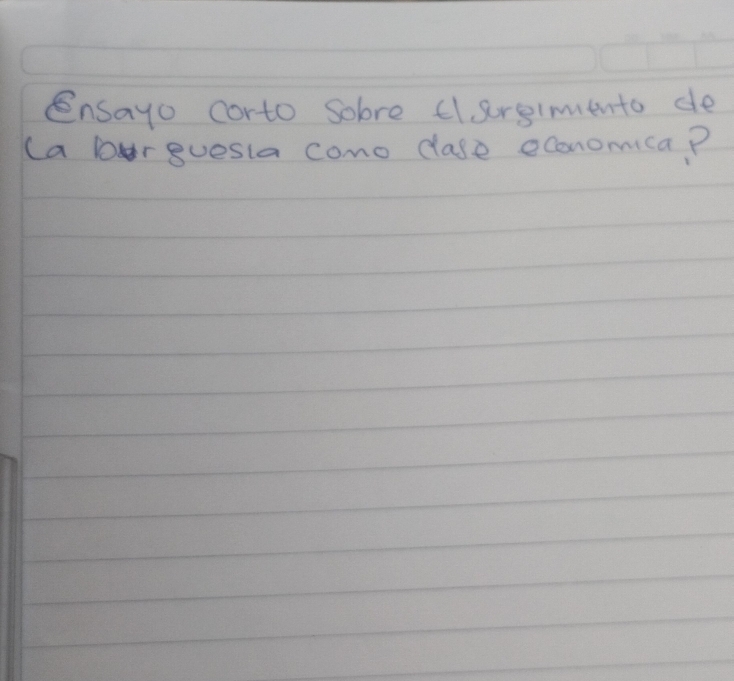 Ensayo corto sobre el surgimiento de
la burguesia como clase economica?